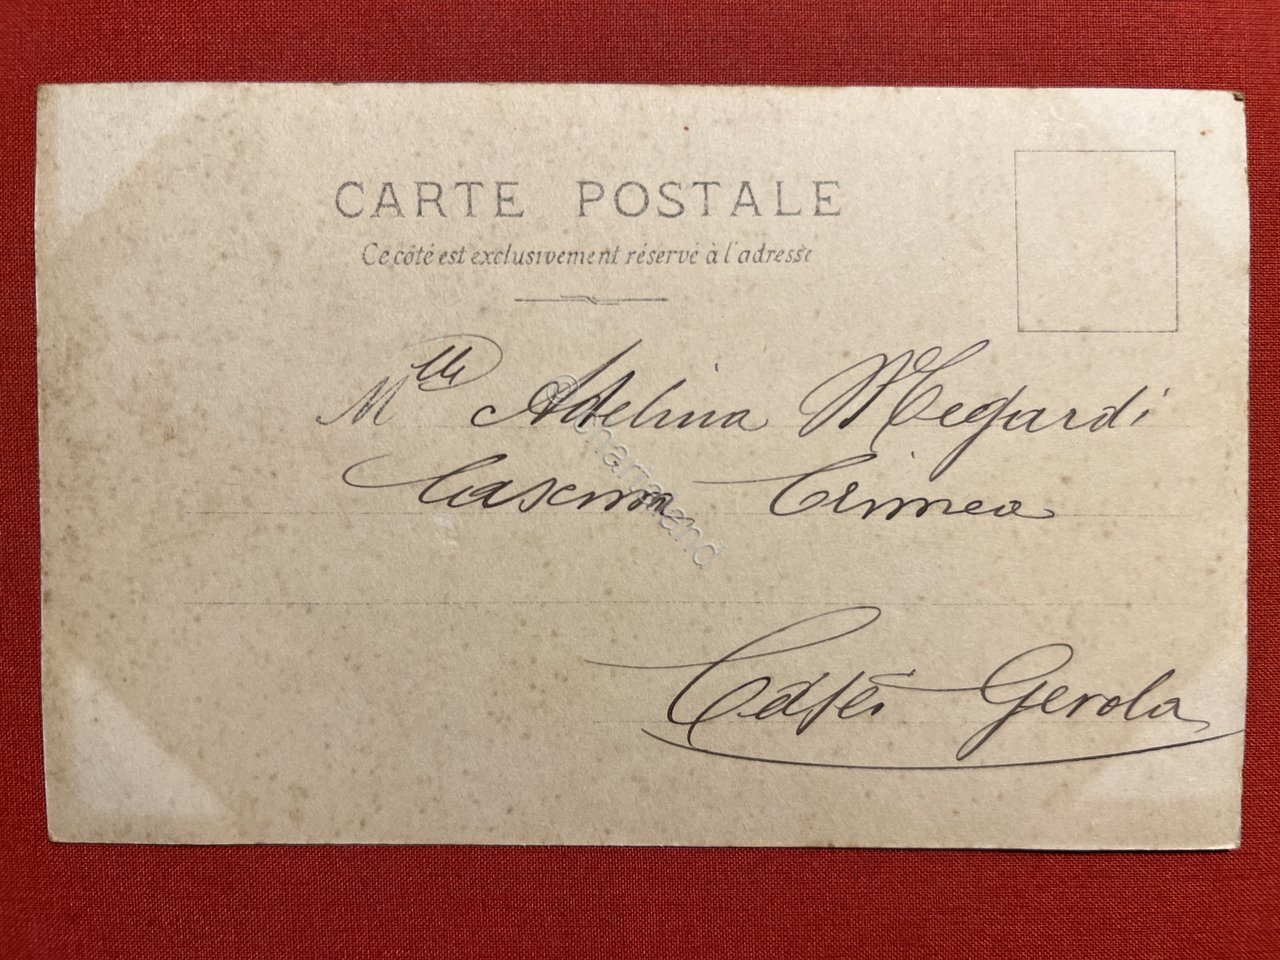 CARTE POSTALE
Ce côté est exclusivement réservé à l'adresse
Mlle Adelina Megardi
Caserma Crimea
Cafè Gerola